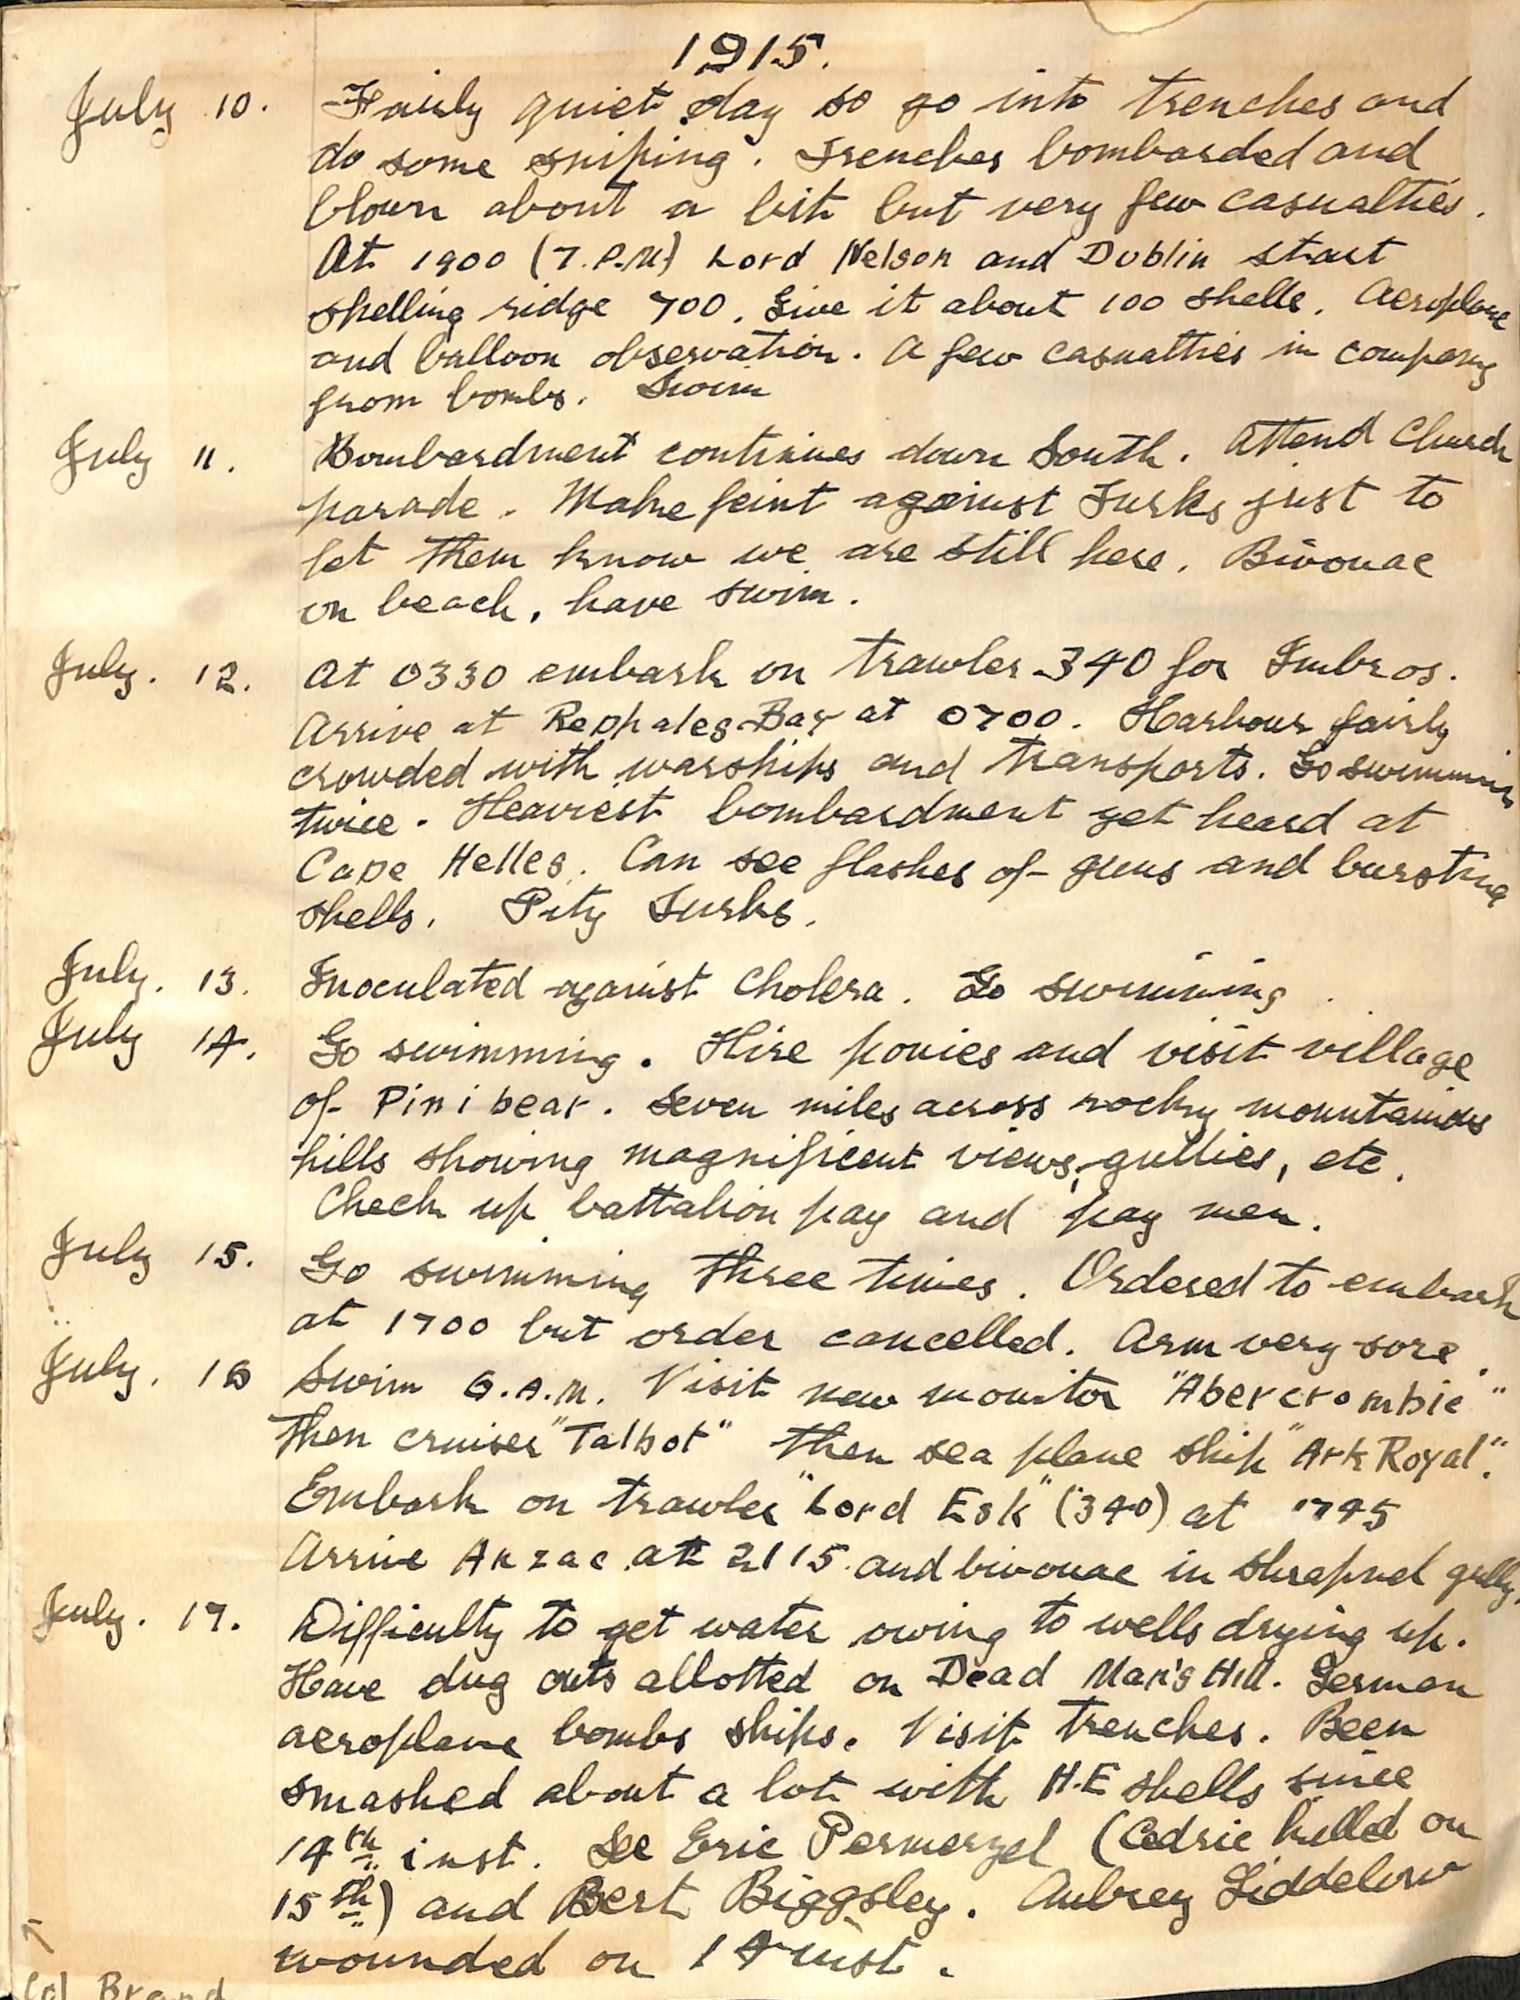 1915.
July 10. Fairly quiet day so go into trenches and
do some sniping. Trenches bombarded and
blown about a bit but very few casualties.
At 1900 (7.P.M) Lord Nelson and Dublin start
shelling ridge 700. Give it about 100 shells. Aeroplane
and balloon observation. A few casualties in company
from bombs. Swim
July 11. Bombardment continues down South. Attend Church
parade. Make feint against Turks just to
let them know we are still here. Bivouac
on beach, have swim.
July. 12. At 0330 embark on trawler 340 for Imbros.
Arrive at Rephales Bay at 0700. Harbour fairly
crowded with warships and transports. Go swimming
twice. Heaviest bombardment yet heard at
Cape Helles. Can see flashes of guns and bursting
shells. Pity Turks.
July. 13. Inoculated against Cholera. Go swimming.
July 14. Go swimming. Hire ponies and visit village
of Pinibear. Seven miles across rocky mountainous
hills showing magnificent views, gullies, etc.
Check up battalion pay and pay men.
July 15. Go swimming three times. Ordered to embark
at 1700 but order cancelled. Arm very sore.
July. 16 Swim 6.A.M. Visit new monitor "Abercrombie"
then cruiser "Talbot" then sea plane ship "Ark Royal".
Embark on trawler "Lord Esk" (340) at 1745
Arrive Anzac at 2115 and bivouac in Shrapnel gully.
July. 17. Difficulty to get water owing to wells drying up.
Have dug outs allotted on Dead Man's Hill. German
aeroplane bombs ships. Visit trenches. Been
smashed about a lot with H.E shells since
14th inst. See Eric Permezel (Cedric killed on
15th) and Bert Biggsley. Aubrey Liddelow
wounded on 14 inst.
Col Brand